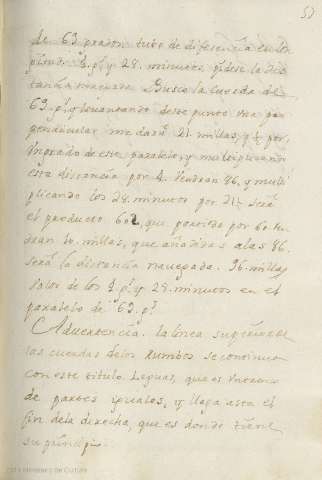 53
de 63 grados tubo de diferencia en lon
gitud 4 g.s y 28 minutos, pidese la dis
tancia navegada. Busco la cuerda de
63 g.s y levantando deste punto una per
pendicular me dará 21 millas, y ½ por
Ungrado de este paralelo, y multiplicando
esta distancia por 4. Vendran 86, y multi
plicando los 28 minutos por 21½ será
el producto 602, que partido por 60. sal
dran 10. millas, que añadidas a las 86.
será la distancia navegada. 96. millas
valor de los 4 g.s y 28 minutos en el
paralelo de 63. g.s
Advertencia. la linea superior de
las cuerdas delos Rumbos se continua
con este titulo. Leguas, que es
de partes iguales, y llega asta el
fin dela derecha, que es donde tiene
su principio.
Ministerio de Cultura